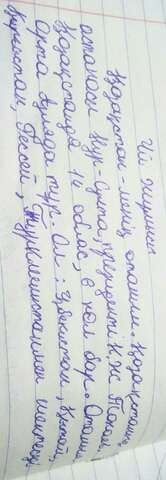 Үй жұмысы
Қазақстан - менің отаным. Қазақстанның
астанасы Нұр-Сұлтан, президенті Қ.Ж. Тоқаев.
Қазақстанда 14 облыс, 6 көл бар. Отаным
Орта Азияда тұр. Ол Өзбекстан, Қытай,
Қырғызстан, Ресей, Түркменстанмен шектеседі